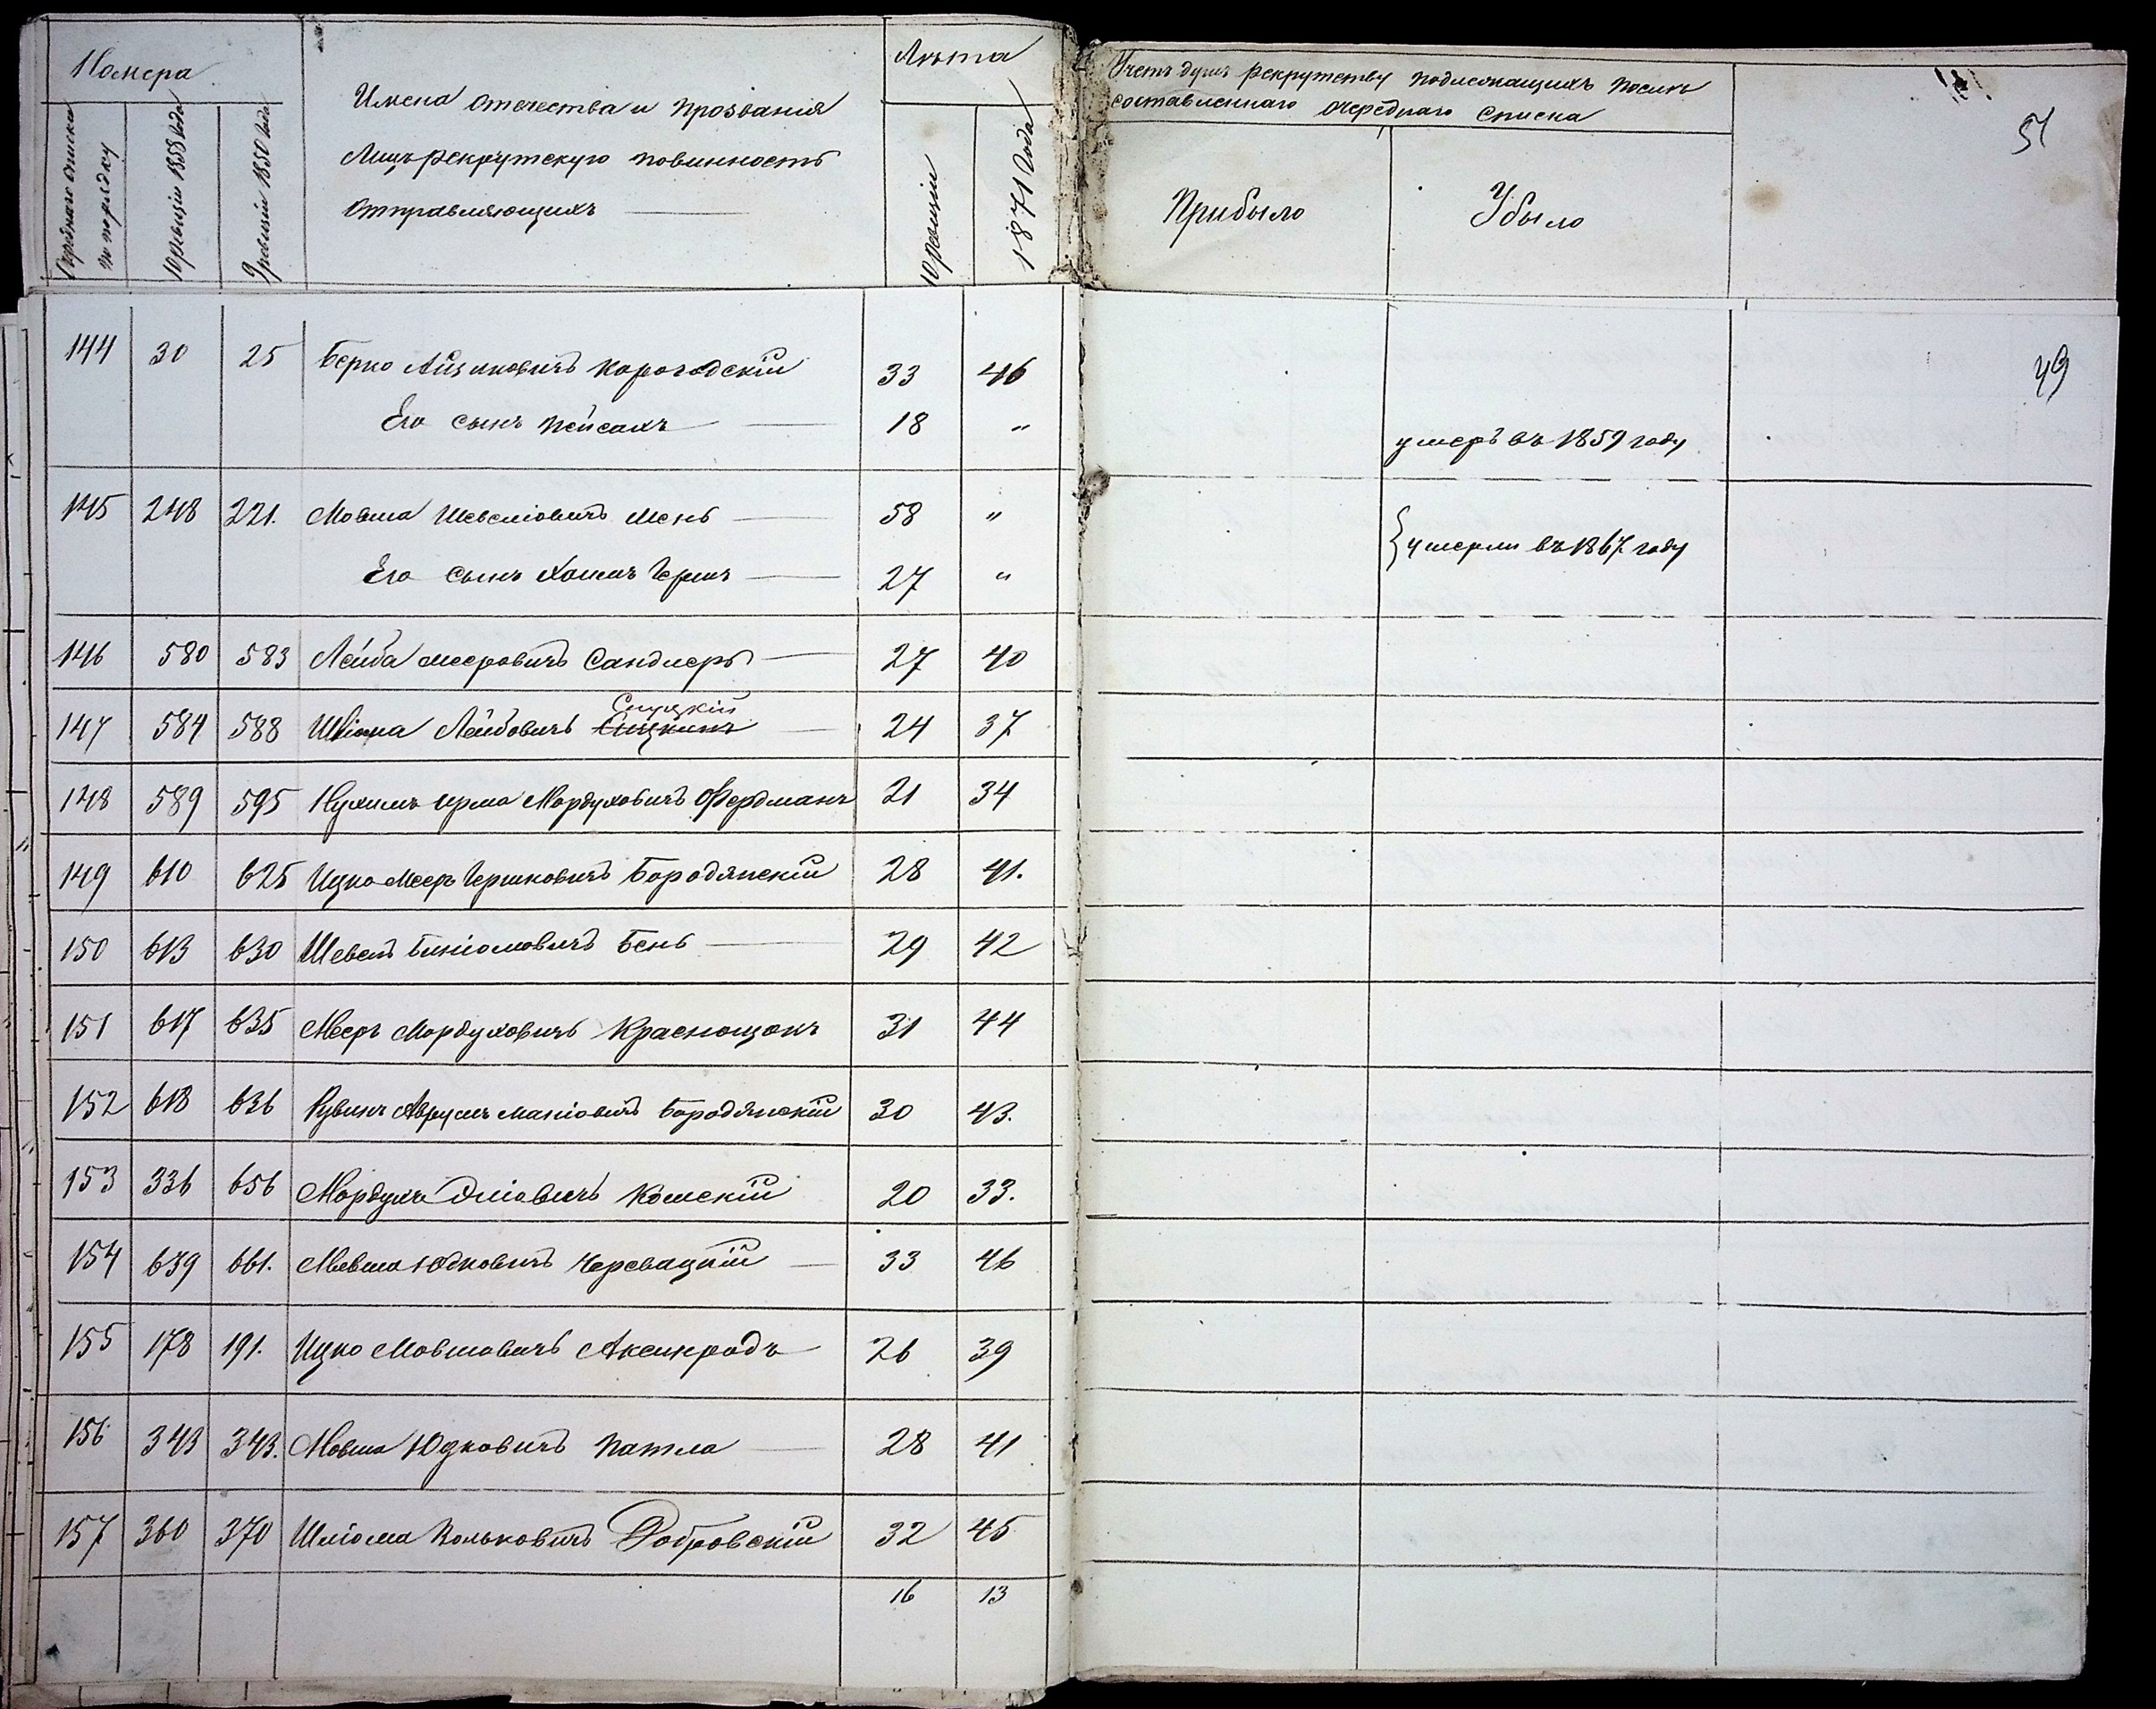 Номера
Очереднаго списка по порядку
10 ревизіи 1858 года
9 ревизіи 1850 года
Имена отечества и прозвания
Лицъ рекрутскую повинность
отправляющихъ
Лѣта
10 ревизіи
1871 года
Учетъ душъ рекрутству подлежащихъ послѣ
составленнаго очереднаго списка
Прибыло
Убыло
51
49
144 30 25 Берко Айзиковичъ Корогодскій 33 46
Его сынъ Пейсахъ 18 " умеръ въ 1859 году
145 248 221. Мовша Шевелiовичъ Мень 58 "
{умерли въ 1867 году
Его сынъ Хаимъ Гершъ 27 "
146 580 583 Лейба Мееровичъ Сандлеръ 27 40
Слуцкій
147 584 588 Шліома Лейбовичъ 24 37
148 589 595 Нухимъ Срма Мордуховичъ Фердманъ 21 34
149 610 625 Ицко Мееръ Гершковичъ Бородянскій 28 41.
150 613 630 Шевель Биніомовичъ Бень 29 42
151 617 635 Мееръ Мордуховичъ Краснощокъ 31 44
152 618 636 Рувинъ Аврумъ Маніовичъ Бородянскій 30 43.
153 336 656 Мордухъ Эліовичъ Комскій 20 33.
154 639 661. Мовша Юдковичъ Черевацкій 33 46
155 178 191. Ицко Мовшовичъ Аксинродъ 26 39
156 343 343. Мовша Юдковичъ Патла 28 41
157 360 370 Шліома Вольковичъ Добровскій 32 45
16 13